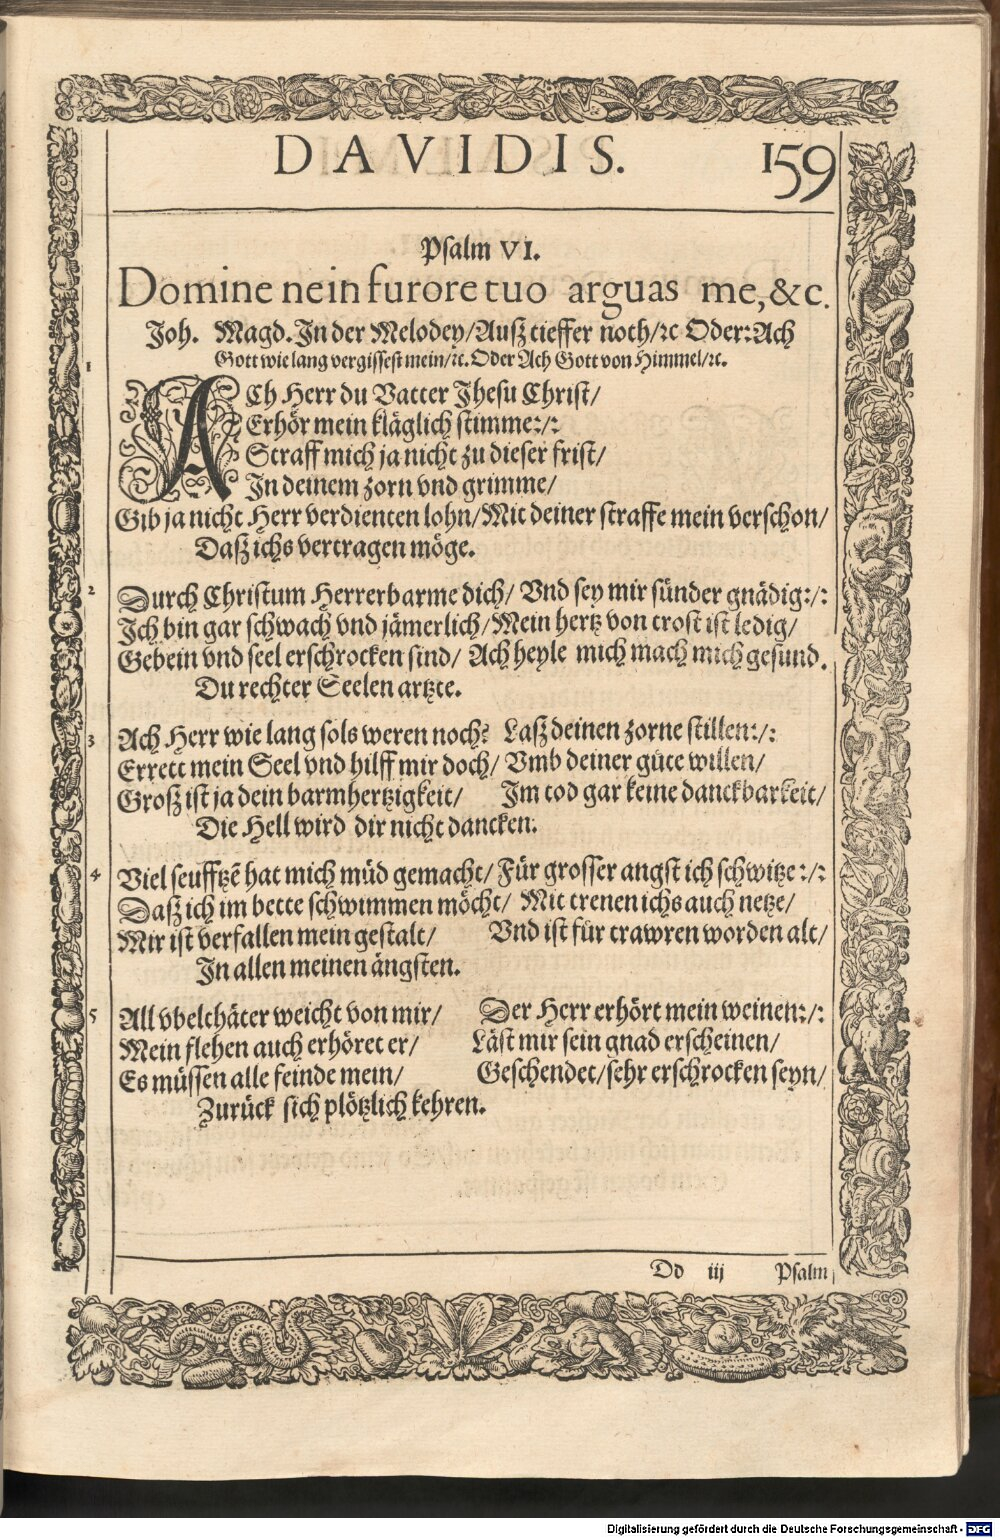 DAVIDIS. 159
Psalm VI.
Domine ne in furore tuo arguas me, &c.
Joh. Magd. In der Melodey/Außz tieffer noth/ꝛc Oder: Ach
Gott wie lang vergissest mein/ꝛc. Oder Ach Gott von Himmel/ꝛc.
1 ACh Herr du Vatter Jhesu Christ/
Erhör mein kläglich stimme:/:
Straff mich ja nicht zu dieser frist/
In deinem zorn vnd grimme/
Gib ja nicht Herr verdienten lohn/Mit deiner straffe mein verschon/
Daß ichs vertragen möge.
2 Durch Christum Herr erbarme dich/ Vnd sey mir sünder gnädig:/:
Ich bin gar schwach vnd jämerlich/Mein hertz von trost ist ledig/
Gebein vnd seel erschrocken sind/ Ach heyle mich mach mich gesund.
Du rechter Seelen artzte.
3 Ach Herr wie lang sols weren noch? Laß deinen zorne stillen:/:
Errett mein Seel vnd hilff mir doch/ Vmb deiner güte willen/
Groß ist ja dein barmhertzigkeit/ Im tod gar keine danckbarkeit/
Die Hell wird dir nicht dancken.
4 Viel seufftzē hat mich müd gemacht/ Für grosser angst ich schwitze:/:
Daß ich im bette schwimmen möcht/ Mit trenen ichs auch netze/
Mir ist verfallen mein gestalt/ Vnd ist für trawren worden alt/
In allen meinen ängsten.
5 All vbelthäter weicht von mir/ Der Herr erhört mein weinen:/:
Mein flehen auch erhöret er/ Läst mir sein gnad erscheinen/
Es müssen alle feinde mein/ Geschendet/sehr erschrocken seyn/
Zurück sich plötzlich kehren.
Dd iij Psalm
Digitalisierung gefördert durch die Deutsche Forschungsgemeinschaft - DFG